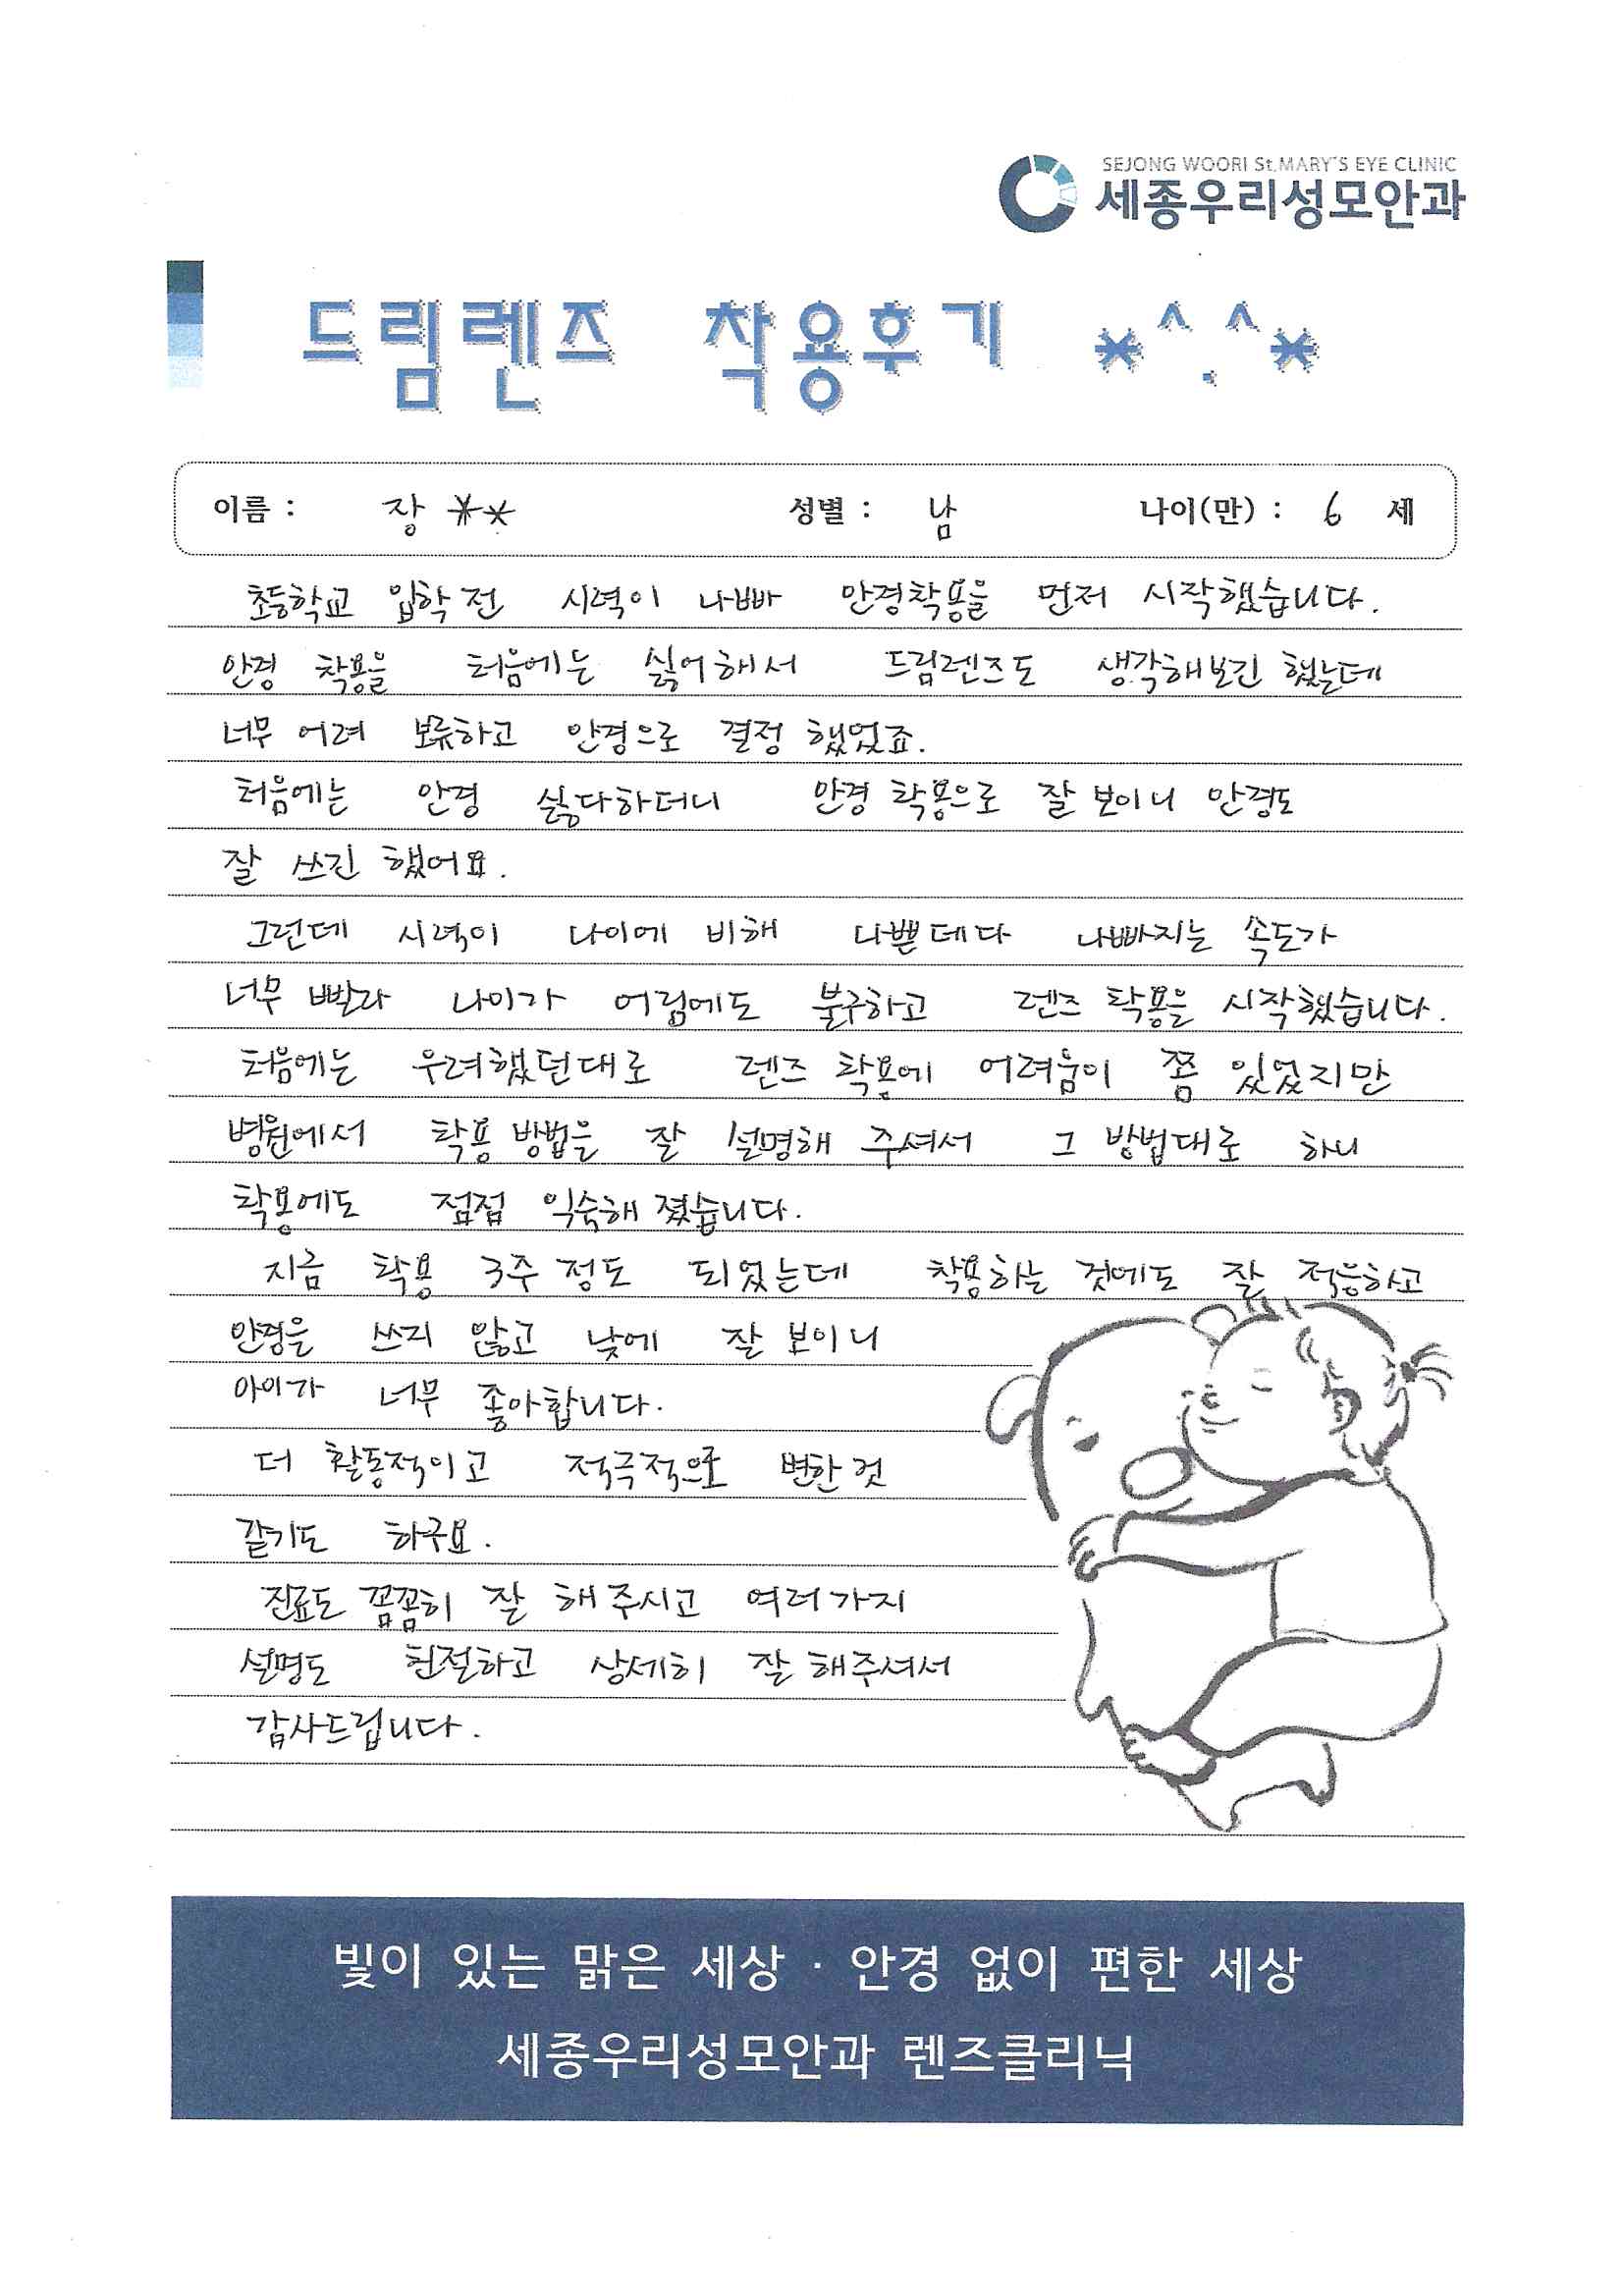 SEJONG WOORI St.MARY'S EYE CLINIC
세종우리성모안과
드림렌즈 착용후기 *^.^*
이름 : 장 ** 성별 : 남 나이(만) : 6 세
초등학교 입학 전 시력이 나빠 안경착용을 먼저 시작했습니다.
안경 착용을 처음에는 싫어해서 드림렌즈도 생각해보긴 했는데
너무 어려 보류하고 안경으로 결정 했었죠.
처음에는 안경 싫다하더니 안경 착용으로 잘 보이니 안경도
잘 쓰긴 했어요.
그런데 시력이 나이에 비해 나쁜데다 나빠지는 속도가
너무 빨라 나이가 어림에도 불구하고 렌즈 착용을 시작했습니다.
처음에는 우려했던대로 렌즈 착용에 어려움이 쫌 있었지만
병원에서 착용 방법을 잘 설명해 주셔서 그 방법대로 하니
착용에도 점점 익숙해 졌습니다.
지금 착용 3주 정도 되었는데 착용하는 것에도 잘 적응하고
안경을 쓰지 않고 낮에 잘 보이니
아이가 너무 좋아합니다.
더 활동적이고 적극적으로 변한 것
같기도 하구요.
진료도 꼼꼼히 잘 해주시고 여러가지
설명도 친절하고 상세히 잘 해주셔서
감사드립니다.
빛이 있는 맑은 세상 · 안경 없이 편한 세상
세종우리성모안과 렌즈클리닉